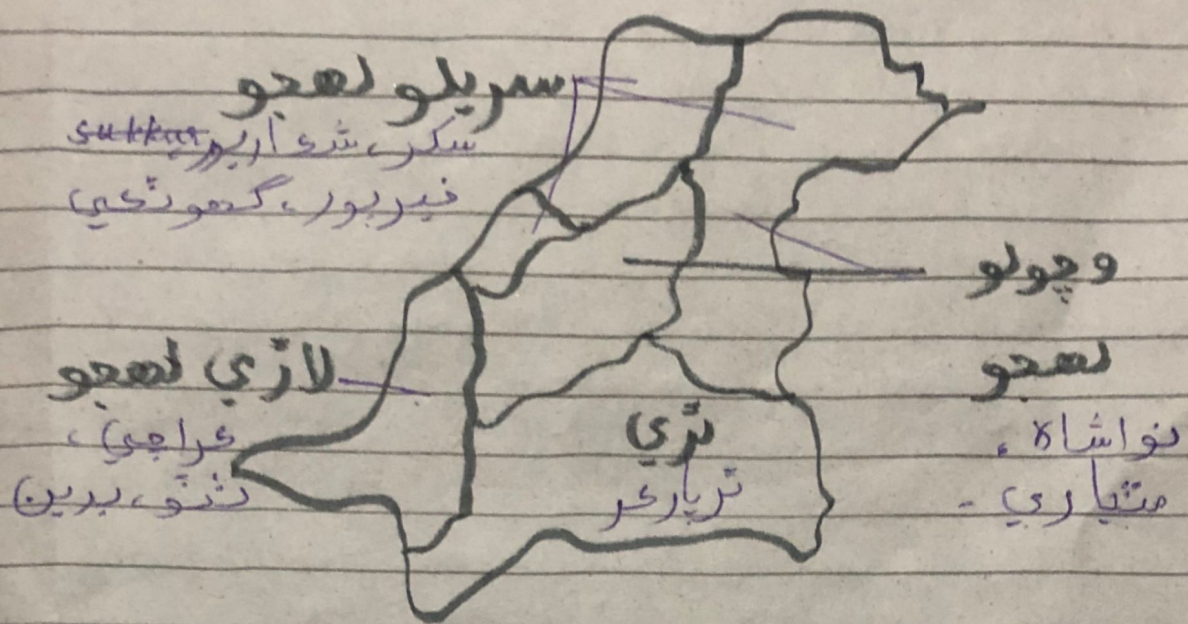 سريلو لهجو
سکر، شڪارپور، sukkur
خيرپور، گھوٽڪي
وچولو
لهجو
نواشاه،
مٽياري -
لاڙي لهجو
ڪراچي،
ٺٽو، بدين
ٿري
ٿرپارڪر